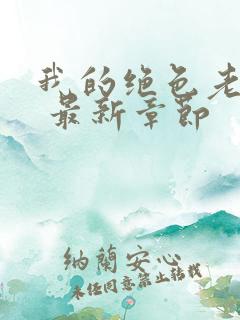 我的绝色老
最新章节
纳兰安心
未经同意禁止转载